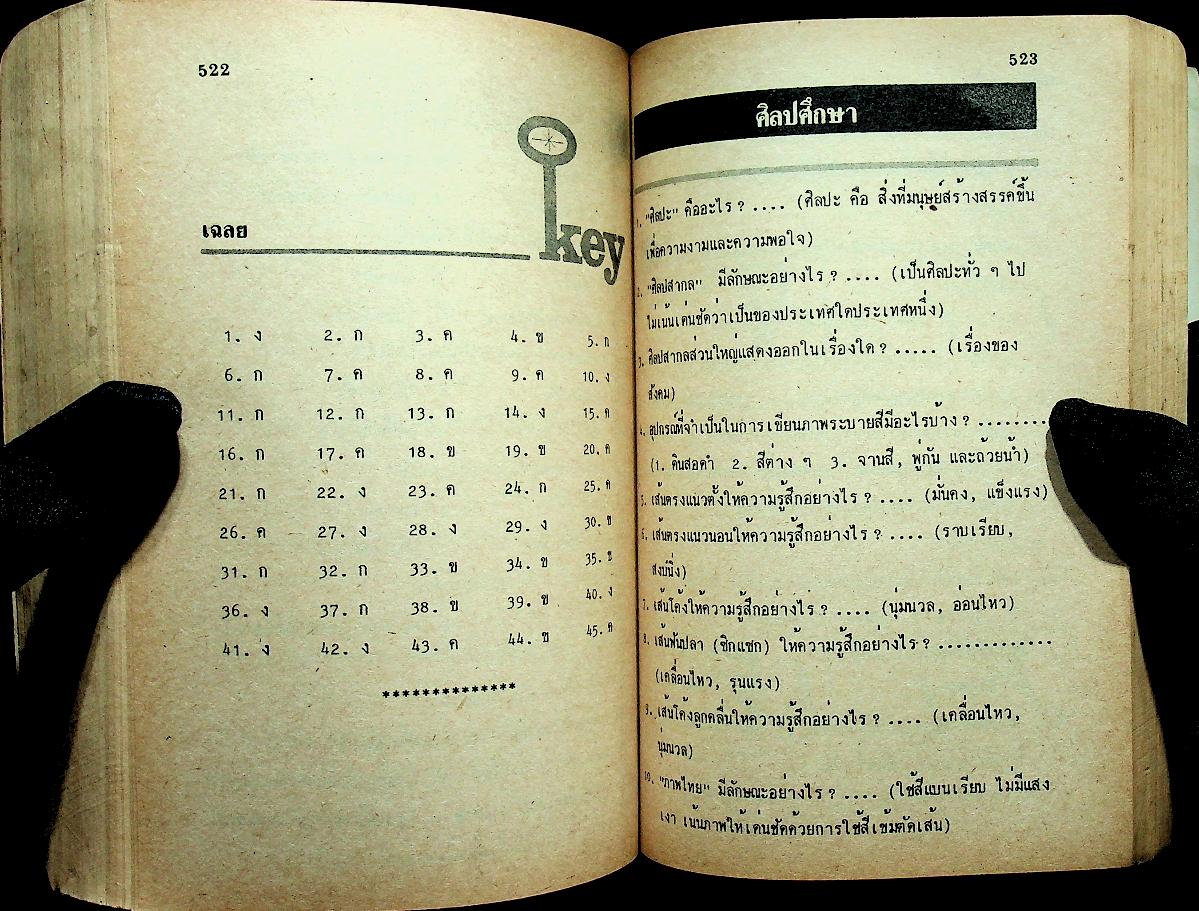 522
เฉลย
key
1. ง 2. ก 3. ค 4. ข 5. ก
6. ก 7. ค 8. ค 9. ค 10. ง
11. ก 12. ก 13. ก 14. ง 15. ค
16. ก 17. ค 18. ข 19. ข 20. ค
21. ก 22. ง 23. ค 24. ก 25. ค
26. ค 27. ง 28. ง 29. ง 30. ข
31. ก 32. ก 33. ข 34. ข 35. ข
36. ง 37. ก 38. ข 39. ข 40. ง
41. ง 42. ง 43. ค 44. ข 45. ค
**************
523
ศิลปศึกษา
1. "ศิลปะ" คืออะไร ? .... (ศิลปะ คือ สิ่งที่มนุษย์สร้างสรรค์ขึ้น
เพื่อความงามและความพอใจ)
2. "ศิลปสากล" มีลักษณะอย่างไร ? .... (เป็นศิลปะทั่ว ๆ ไป
ไม่เน้นเด่นชัดว่าเป็นของประเทศใดประเทศหนึ่ง)
3. ศิลปสากลส่วนใหญ่แสดงออกในเรื่องใด ? ..... (เรื่องของ
สังคม)
4. อุปกรณ์ที่จำเป็นในการเขียนภาพระบายสีมีอะไรบ้าง ? ........
(1. ดินสอดำ 2. สีต่าง ๆ 3. จานสี, พู่กัน และถ้วยน้ำ)
5. เส้นตรงแนวตั้งให้ความรู้สึกอย่างไร ? .... (มั่นคง, แข็งแรง)
6. เส้นตรงแนวนอนให้ความรู้สึกอย่างไร ? .... (ราบเรียบ,
สงบนิ่ง)
7. เส้นโค้งให้ความรู้สึกอย่างไร ? .... (นุ่มนวล, อ่อนไหว)
8. เส้นฟันปลา (ซิกแซก) ให้ความรู้สึกอย่างไร ? .............
(เคลื่อนไหว, รุนแรง)
9. เส้นโค้งลูกคลื่นให้ความรู้สึกอย่างไร ? .... (เคลื่อนไหว,
นุ่มนวล)
10. "ภาพไทย" มีลักษณะอย่างไร ? .... (ใช้สีแบนเรียบ ไม่มีแสง
เงา เน้นภาพให้เด่นชัดด้วยการใช้สีเข้มตัดเส้น)